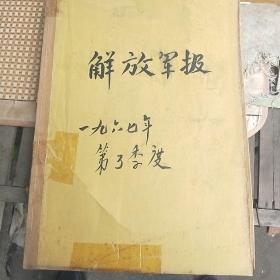 解放军报
一九六七年
第3季度